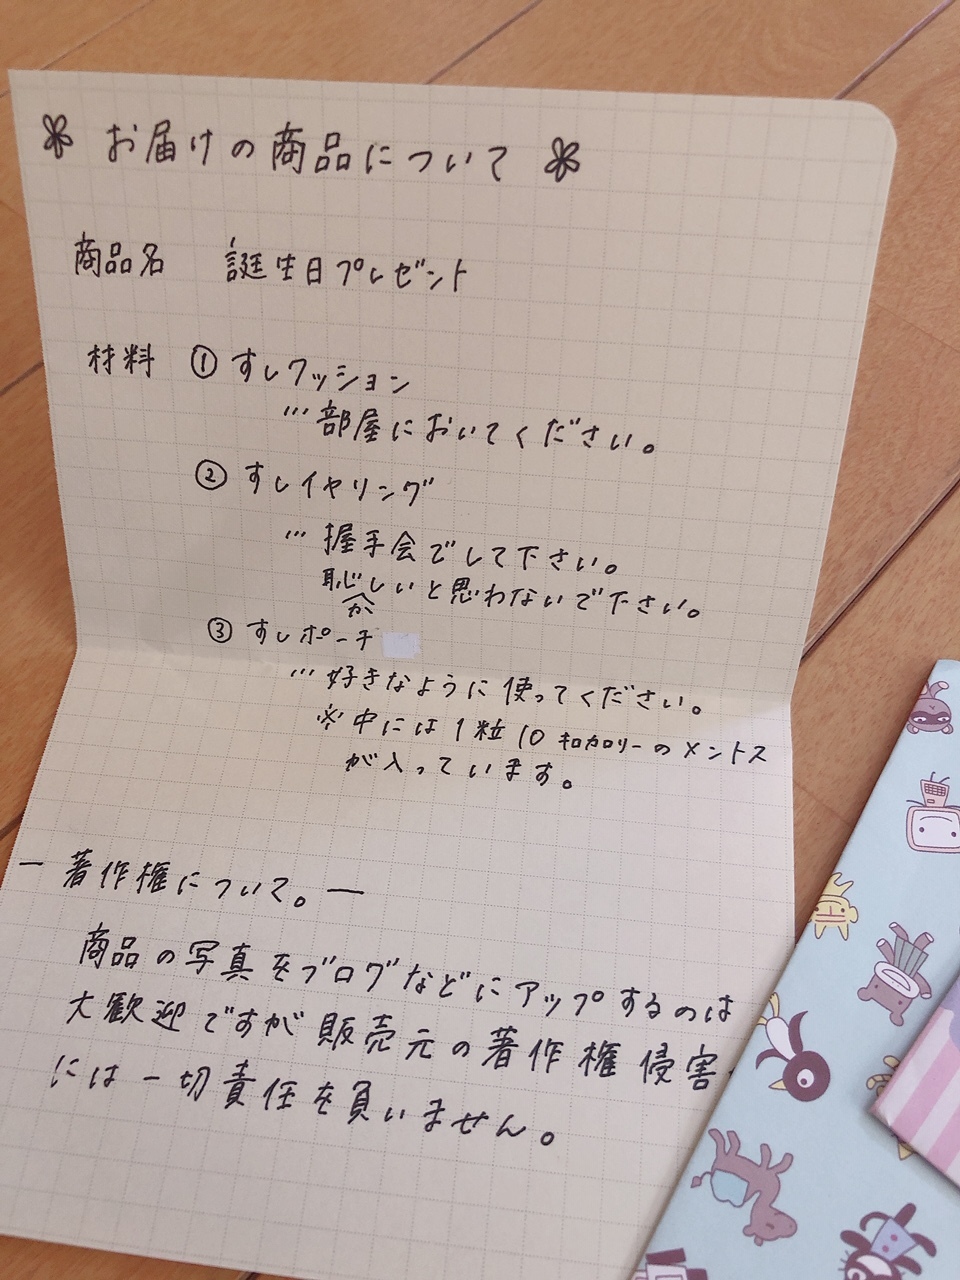 お届けの商品について
商品名 誕生日プレゼント
材料 ① すしクッション
…部屋においてください。
② すしイヤリング
…握手会でして下さい。
恥しいと思わないで下さい。
か
③ すしポーチ
…好きなように使ってください。
※中には1粒10キロカロリーのメントス
が入っています。
ー 著作権について。ー
商品の写真をブログなどにアップするのは
大歓迎ですが販売元の著作権侵害
には一切責任を負いません。